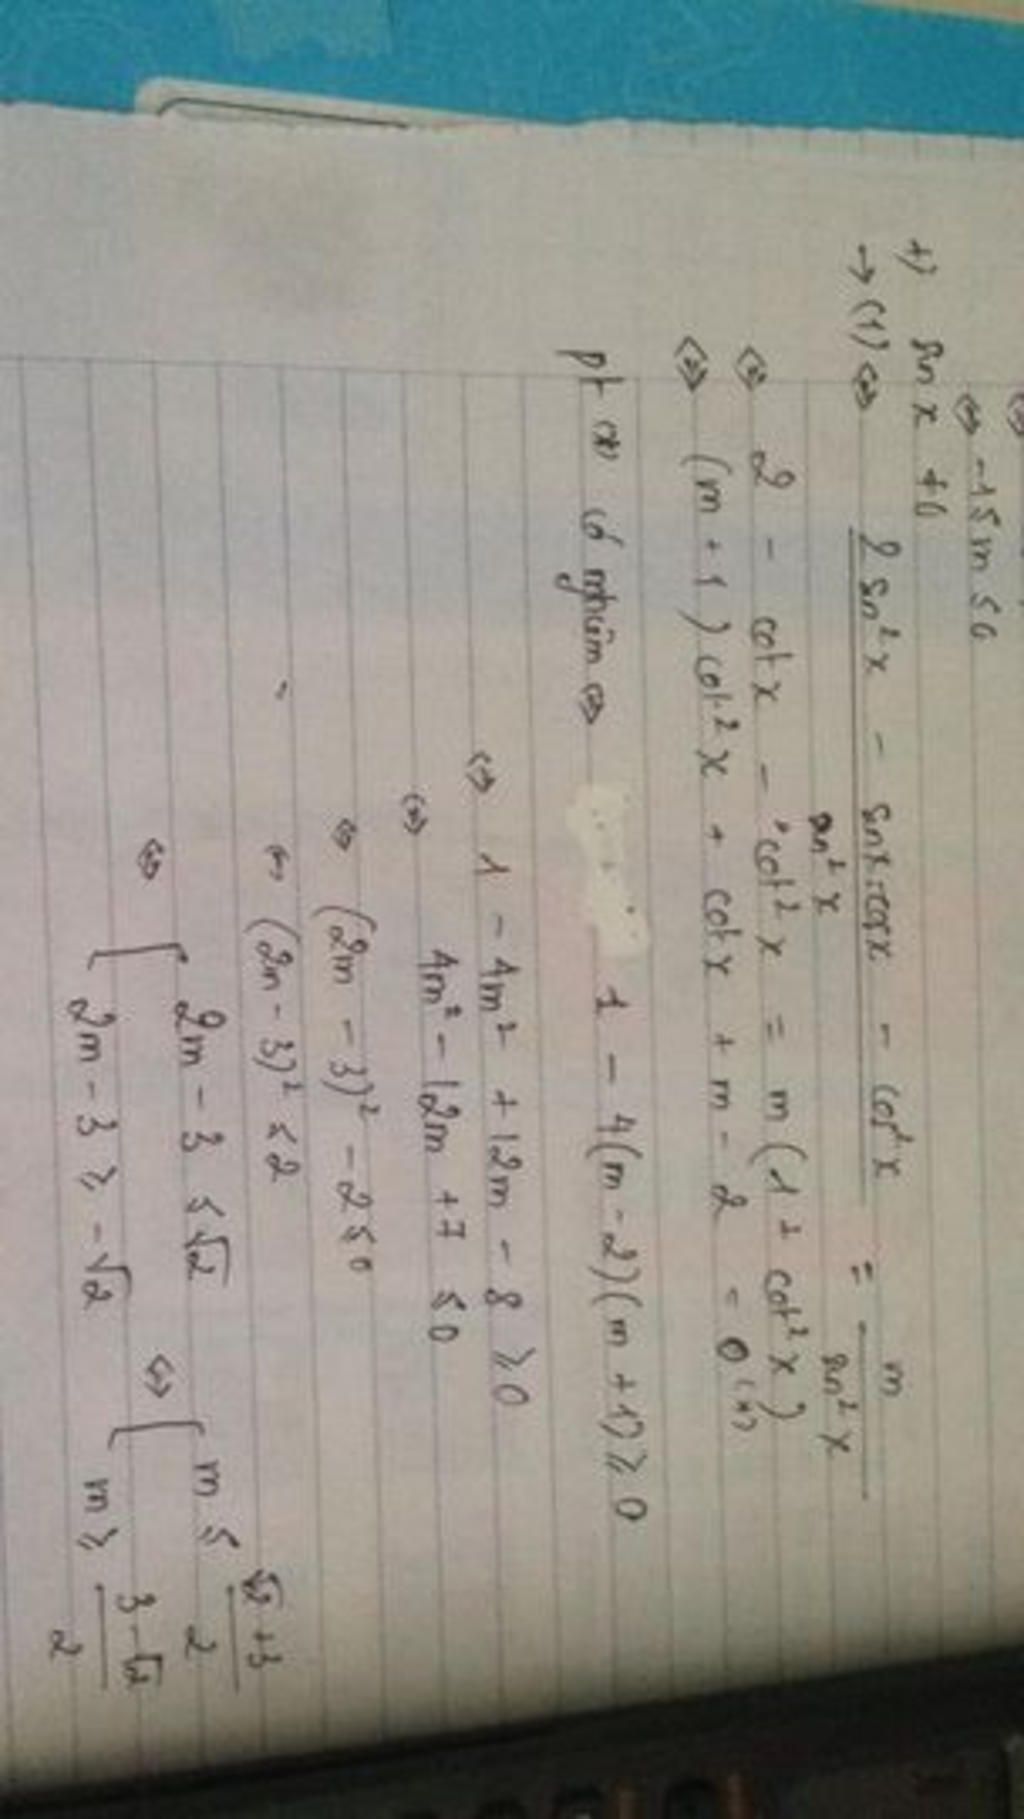 ⇔ -1 ≤ m ≤ 0
+) sin x ≠ 0
→ (1) ⇔ 2 sin²x - sinx.cosx - cos²x / sin²x = m / sin²x
⇔ 2 - cotx - cot²x = m (1 + cot²x)
⇔ (m + 1) cot²x + cotx + m - 2 = 0 (*)
pt (*) có nghiệm ⇔ 1 - 4(m - 2)(m + 1) ≥ 0
⇔ 1 - 4m² + 12m - 8 ≥ 0
⇔ 4m² - 12m + 7 ≤ 0
⇔ (2m - 3)² - 2 ≤ 0
⇔ (2m - 3)² ≤ 2
⇔ [ 2m - 3 ≤ √2 ⇔ [ m ≤ √2 + 3 / 2
2m - 3 ≥ -√2 m ≥ 3 - √2 / 2